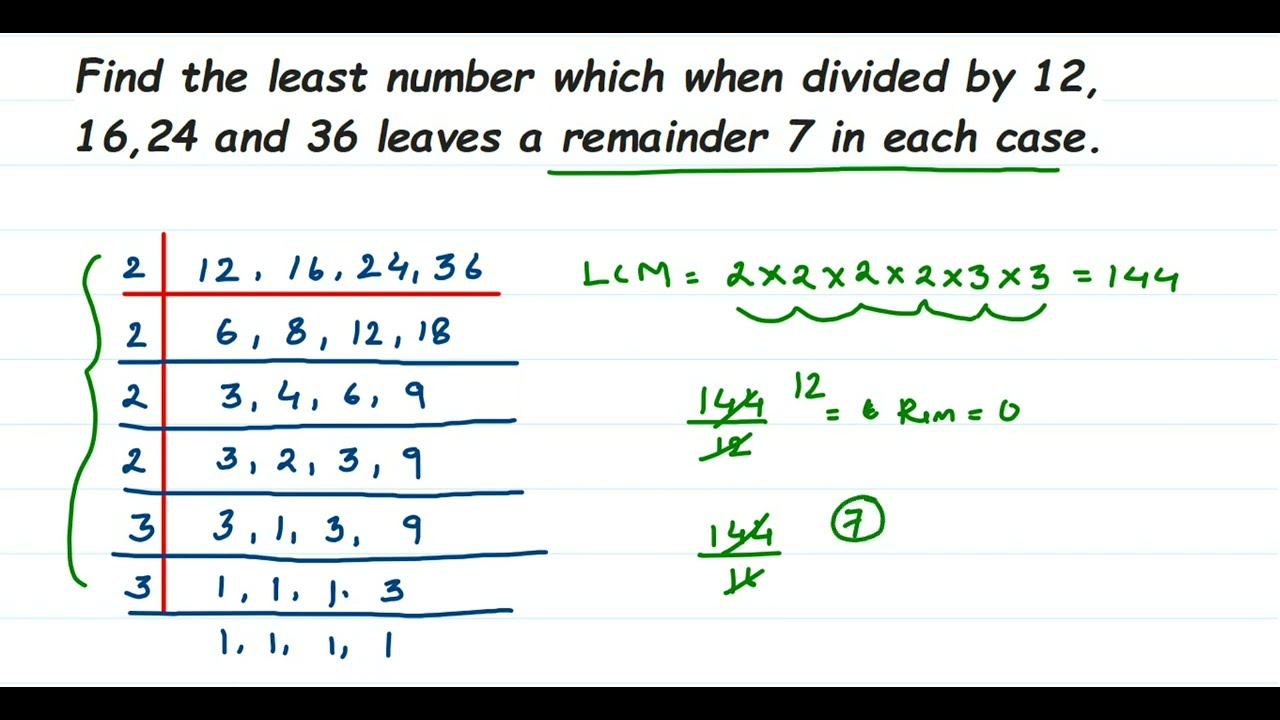 Find the least number which when divided by 12,
16,24 and 36 leaves a remainder 7 in each case.
2 12, 16, 24, 36
2 6, 8, 12, 18
2 3, 4, 6, 9
2 3, 2, 3, 9
3 3, 1, 3, 9
3 1, 1, 1. 3
1, 1, 1, 1
LCM = 2×2×2×2×3×3 = 144
144 12
12 = Rem = 0
144 7
16